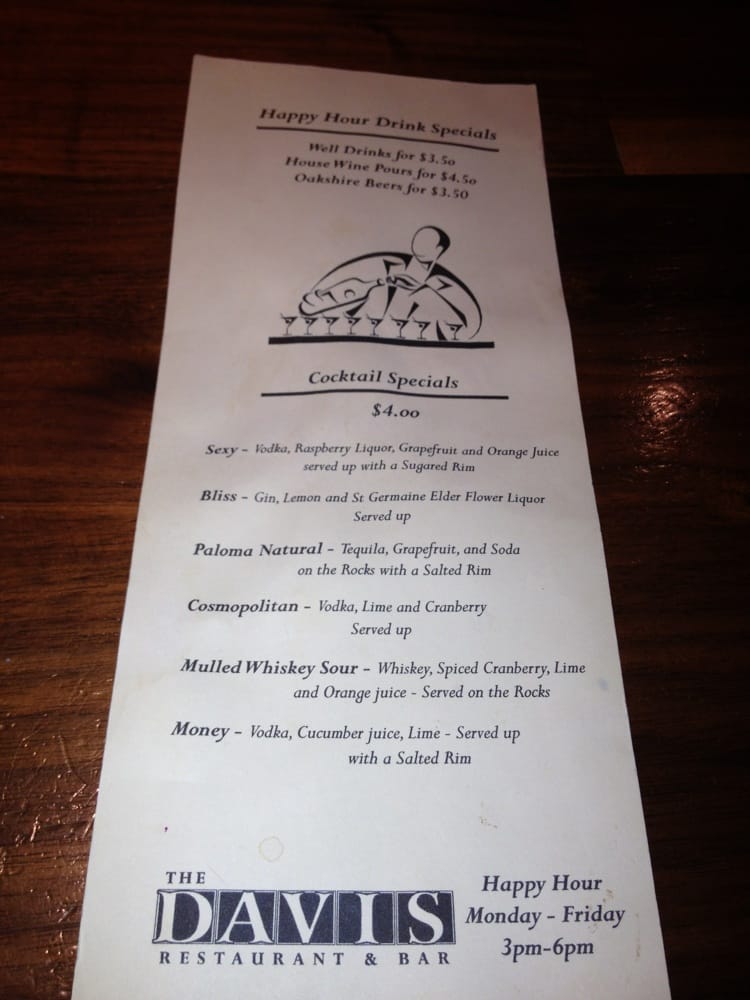 Happy Hour Drink Specials
Well Drinks for $3.50
House Wine Pours for $4.50
Oakshire Beers for $3.50
Cocktail Specials
$4.00
Sexy - Vodka, Raspberry Liquor, Grapefruit and Orange Juice
served up with a Sugared Rim
Bliss - Gin, Lemon and St Germaine Elder Flower Liquor
Served up
Paloma Natural - Tequila, Grapefruit, and Soda
on the Rocks with a Salted Rim
Cosmopolitan - Vodka, Lime and Cranberry
Served up
Mulled Whiskey Sour - Whiskey, Spiced Cranberry, Lime
and Orange juice - Served on the Rocks
Money - Vodka, Cucumber juice, Lime - Served up
with a Salted Rim
THE
DAVIS
RESTAURANT & BAR
Happy Hour
Monday - Friday
3pm-6pm